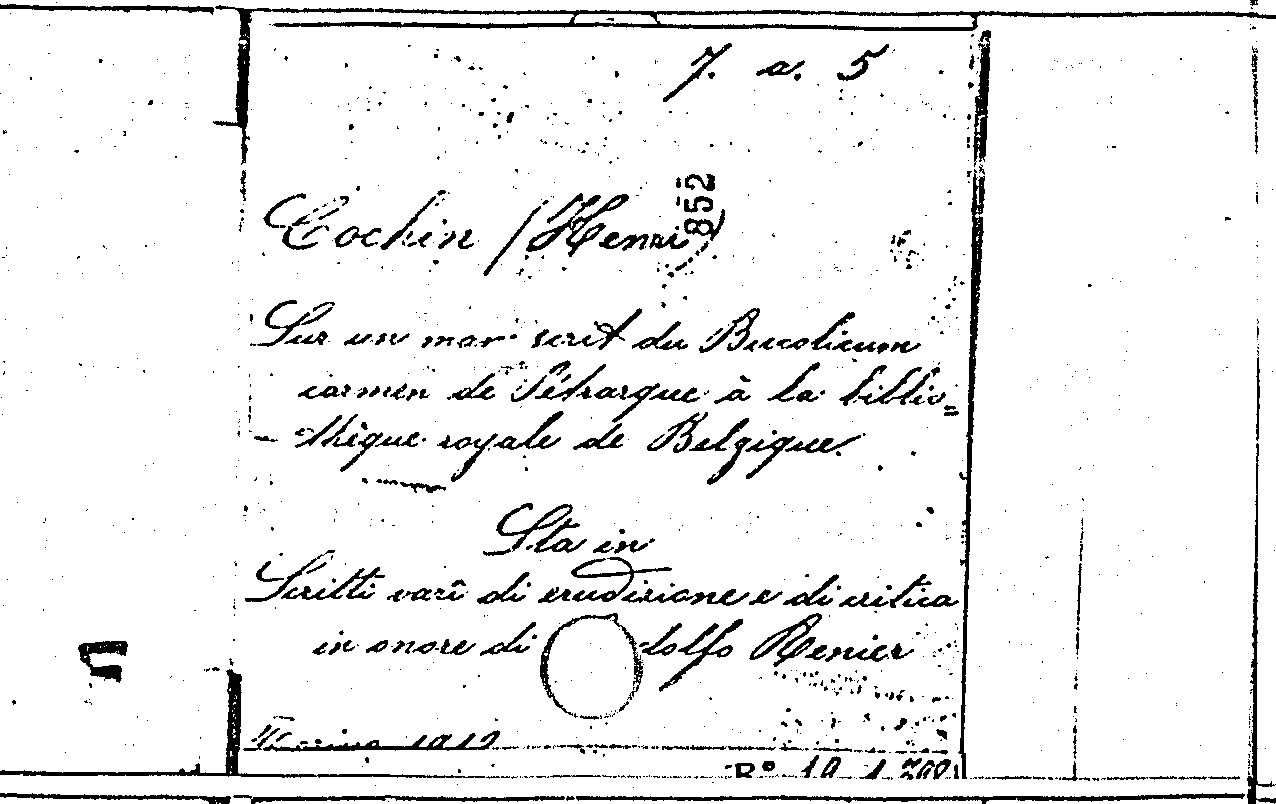 7. a. 5
852
Cochin / Henri
Sur un man scrit du Bucolicum
carmen de Pétrarque à la biblio=
thèque royale de Belgique.
Sta in
Scritti varî di erudizione e di critica
in onore di dolfo Renier
Torino 1912